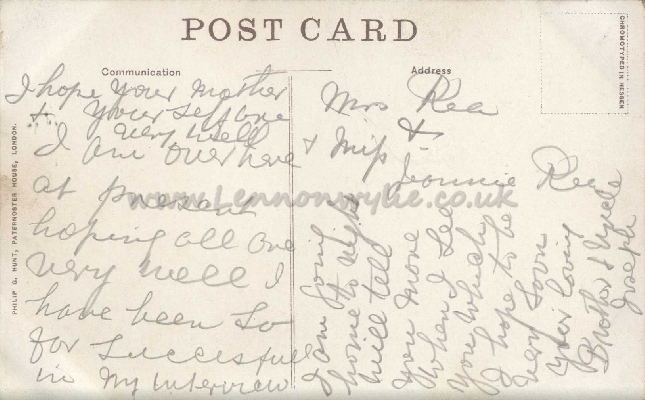 POST CARD
Communication
Address
CHROMOTYPED IN HESSEN
PHILIP G. HUNT, PATERNOSTER HOUSE, LONDON.
I hope your Mother
& your self are
very well
I am over here
at present
hoping all are
very well I
have been so
far successful
in my interview
& Miss
Mrs Rea
&
Jeannie Rea
I am going
home to night
will tell
you more
when I See
you which
I hope to be
very soon
your loving
Brother & Uncle
Joseph
www.Lennonwylie.co.uk